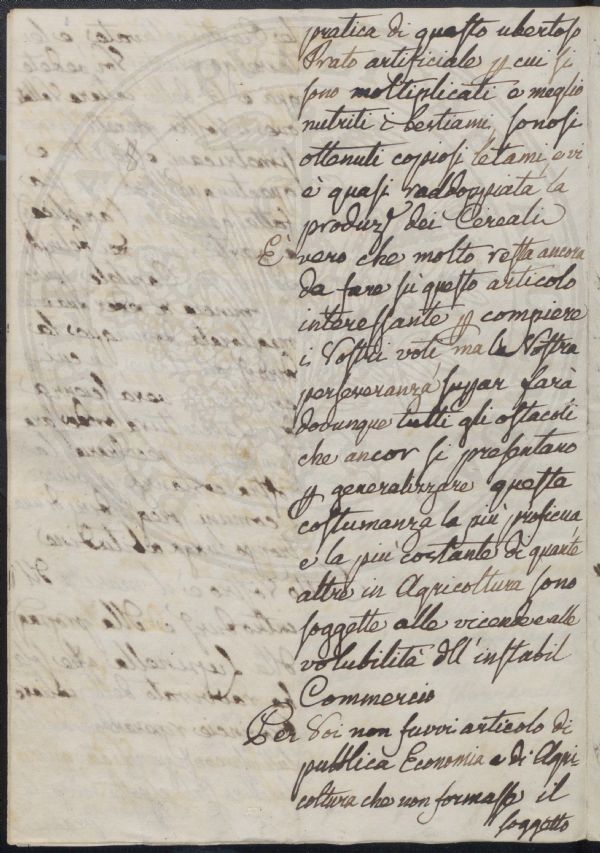 pratica di questo ubertoso
Prato artificiale p cui si
sono moltiplicati e meglio
nutriti i bestiami, sonosi
ottenuti copiosi letami, e vi
è quasi raddoppiata la
produze dei Cereali
È vero che molto resta ancora
da fare sù questo articolo
interessante p compiere
i Vostri voti ma la Vostra
perseveranza suppar farà
dovunque tutti gli ostacoli
che ancor si presentano
p generalizzare questa
costumanza la più proficua
e la più costante di quante
altre in Agricoltura sono
soggette alle vicende e alle
volubilità dll' instabil
Commercio
Per Voi non fuvvi articolo di
pubblica Economia e di Agri-
coltura che non formasse il
soggetto